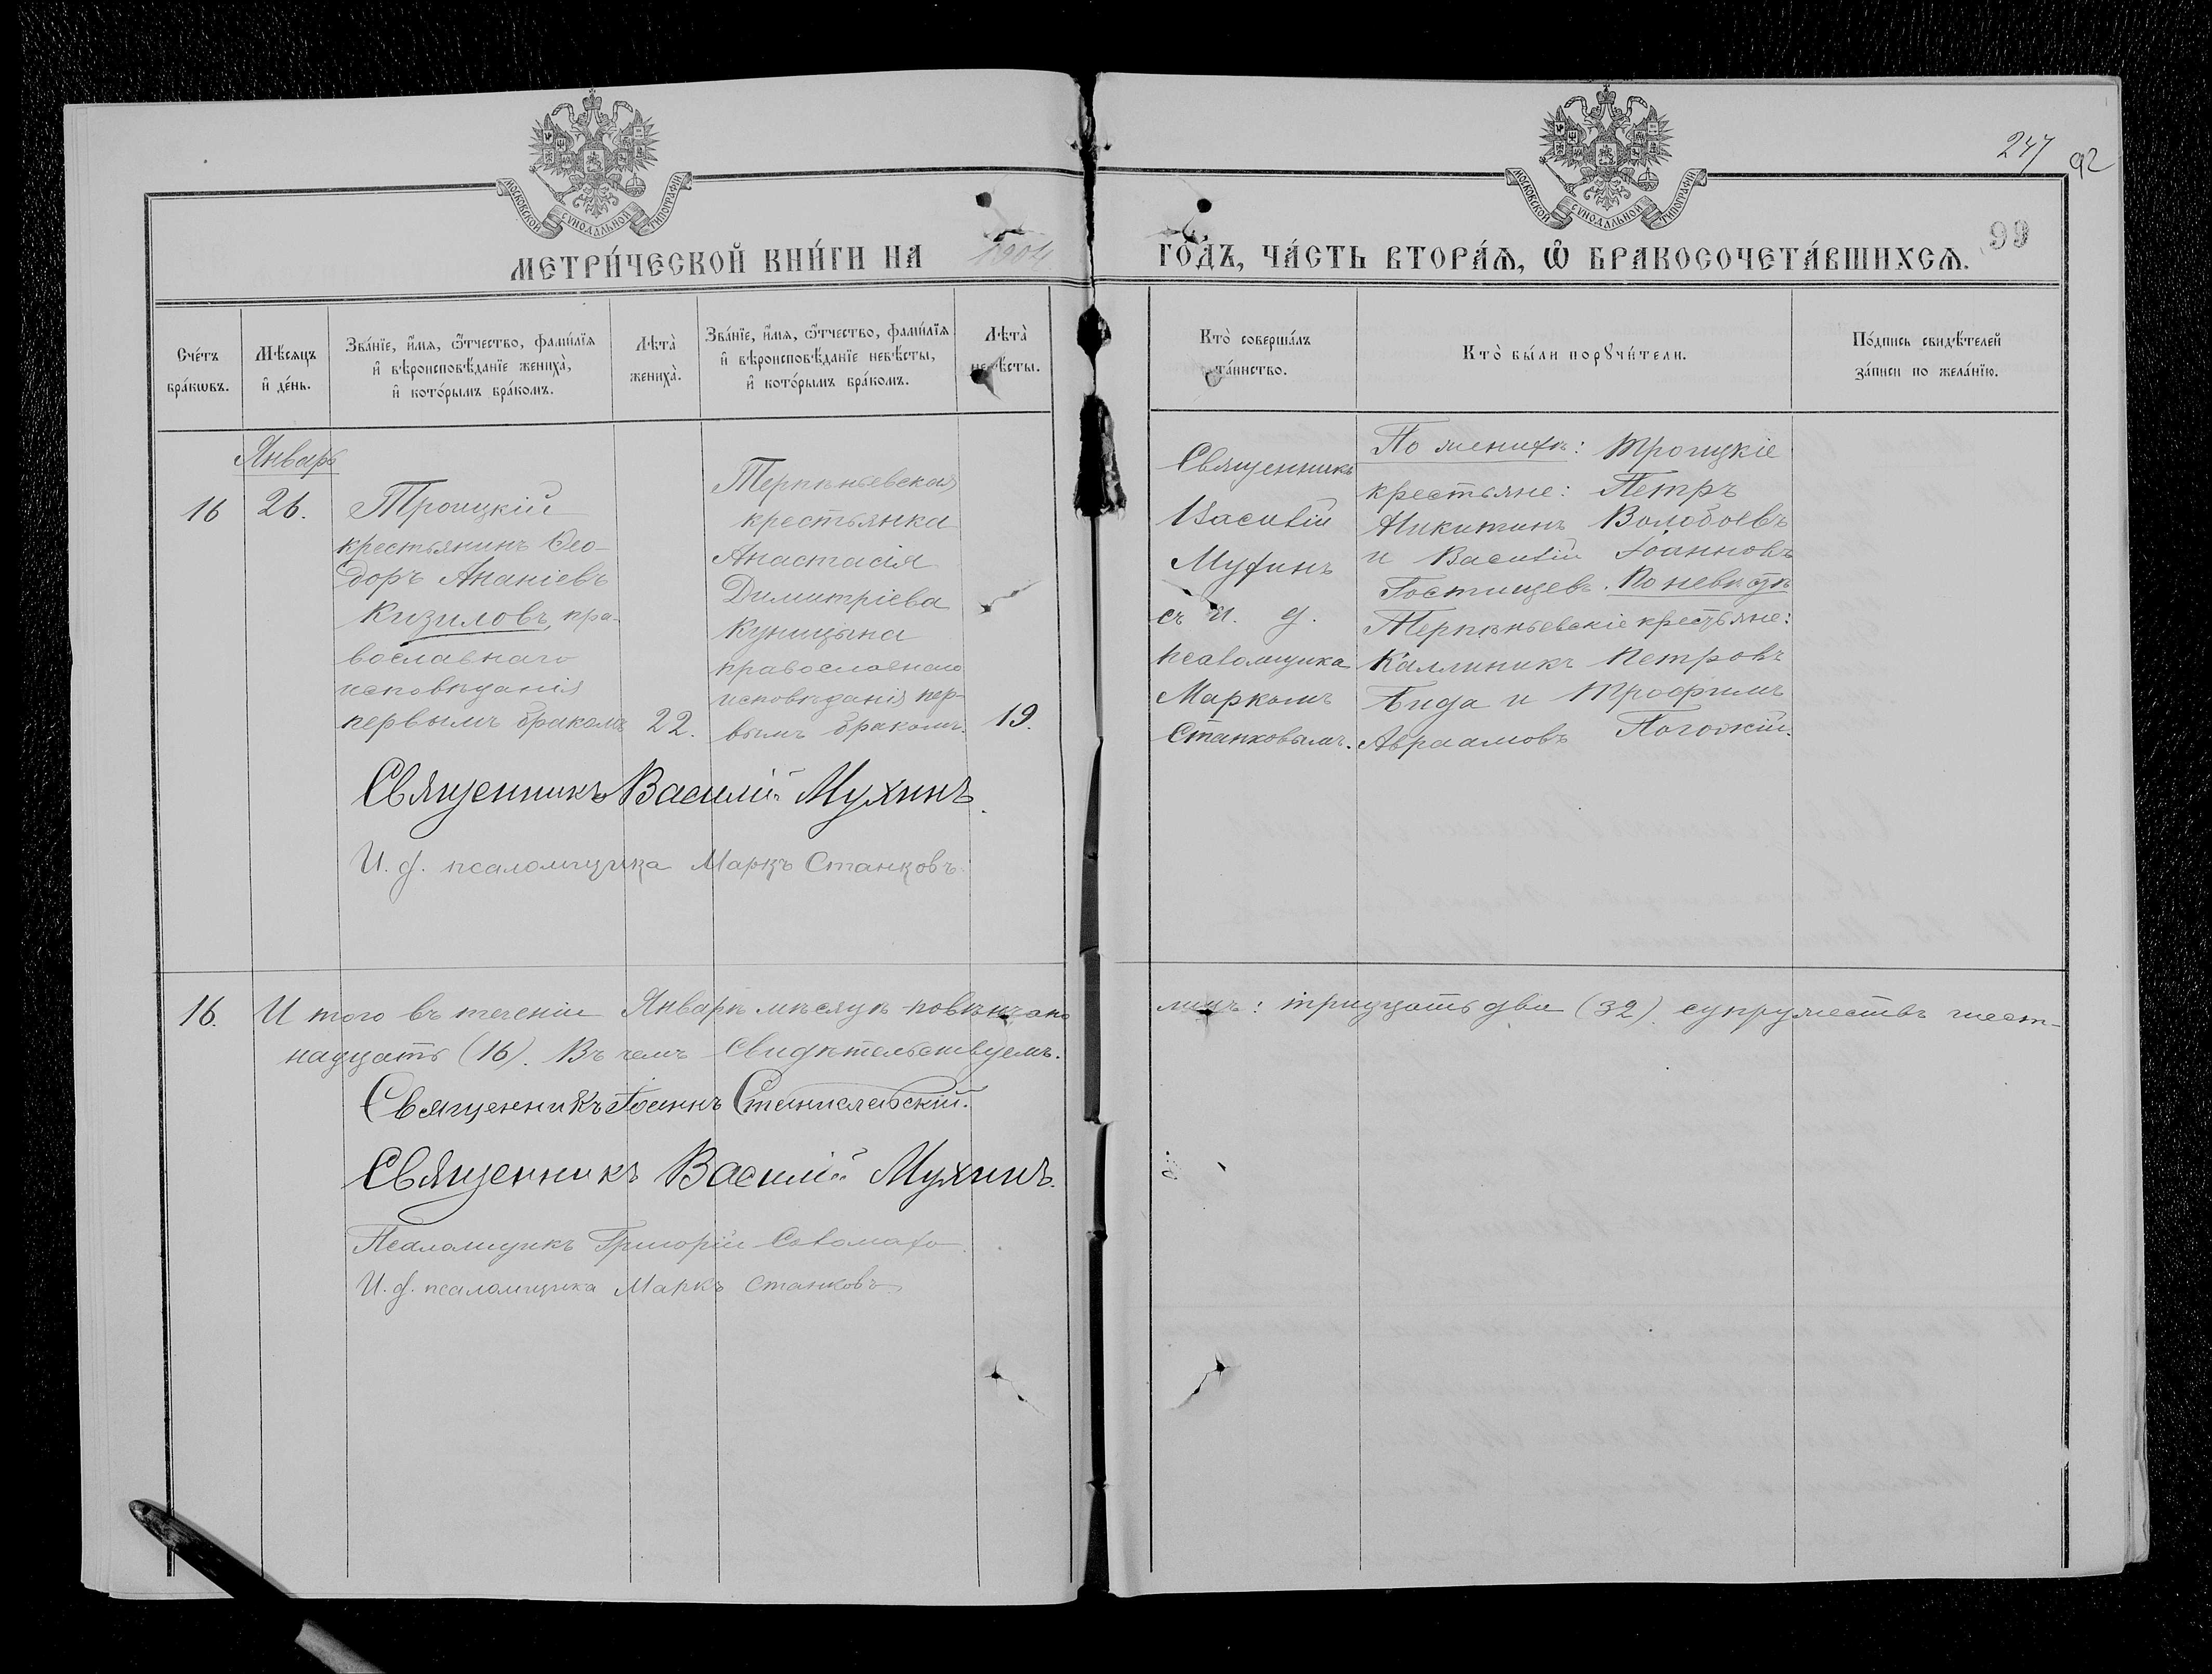 247
92
99
МОСКОВСКОЙ СѴНОДАЛЬНОЙ ТИПОГРАФІИ
МОСКОВСКОЙ СѴНОДАЛЬНОЙ ТИПОГРАФІИ
МЕТРИ́ЧЕСКОЙ КНИ́ГИ НА 1904
ГО́ДЪ, ЧА́СТЬ ВТОРА́Ѧ, Ѽ БРАКОСОЧЕТА́ВШИХСѦ.
Сче́тъ
бра́кѡвъ.
Мѣ́сяцъ
и҆ де́нь.
Зва́нїе, и҆́мѧ, ѻ҆́тчество, фами́лїѧ
и҆ вѣроисповѣ́данїе жениха̀,
и҆ кото́рымъ бра́комъ.
Лѣта̀
жениха̀.
Зва́нїе, и҆́мѧ, ѻ҆́тчество, фами́лїѧ
и҆ вѣроисповѣ́данїе невѣ́сты,
и҆ кото́рымъ бра́комъ.
Лѣта̀
невѣ́сты.
Кто̀ соверша́лъ
та́инство.
Кто̀ бы́ли порꙋчи́тели.
По́дпись свидѣ́телей
за́писи по жела́нїю.
Январь
16
26.
Троицкій
крестьянинъ Ѳео-
доръ Ананіевъ
Кизиловъ, пра-
вославнаго
исповѣданія
первымъ бракомъ
22.
Терпѣньевская
крестьянка
Анастасія
Димитріева
Куницына
православнаго
исповѣданія пер-
вымъ бракомъ.
19.
Священникъ
Василій
Мухинъ
съ и. д.
псаломщика
Маркомъ
Станковымъ.
По женихѣ: Троицкіе
крестьяне: Петръ
Никитинъ Волобоевъ
и Василій Іоанновъ
Гостищевъ. По невѣстѣ
Терпѣньевскіе крестьяне:
Каллиникъ Петровъ
Бида и Трофимъ
Авраамовъ Погожій.
Священникъ Василій Мухинъ.
И. д. псаломщика Маркъ Станковъ
16.
И того въ теченіи Январѣ мѣсяцѣ повѣнчано
лицъ: тридцать два (32) супружествъ шест-
надцать (16). Въ чемъ свидѣтельствуемъ.
Священникъ Іоаннъ Станиславскій.
Священникъ Василій Мухинъ.
Псаломщикъ Григорій Соломахо
И. д. псаломщика Маркъ Станковъ